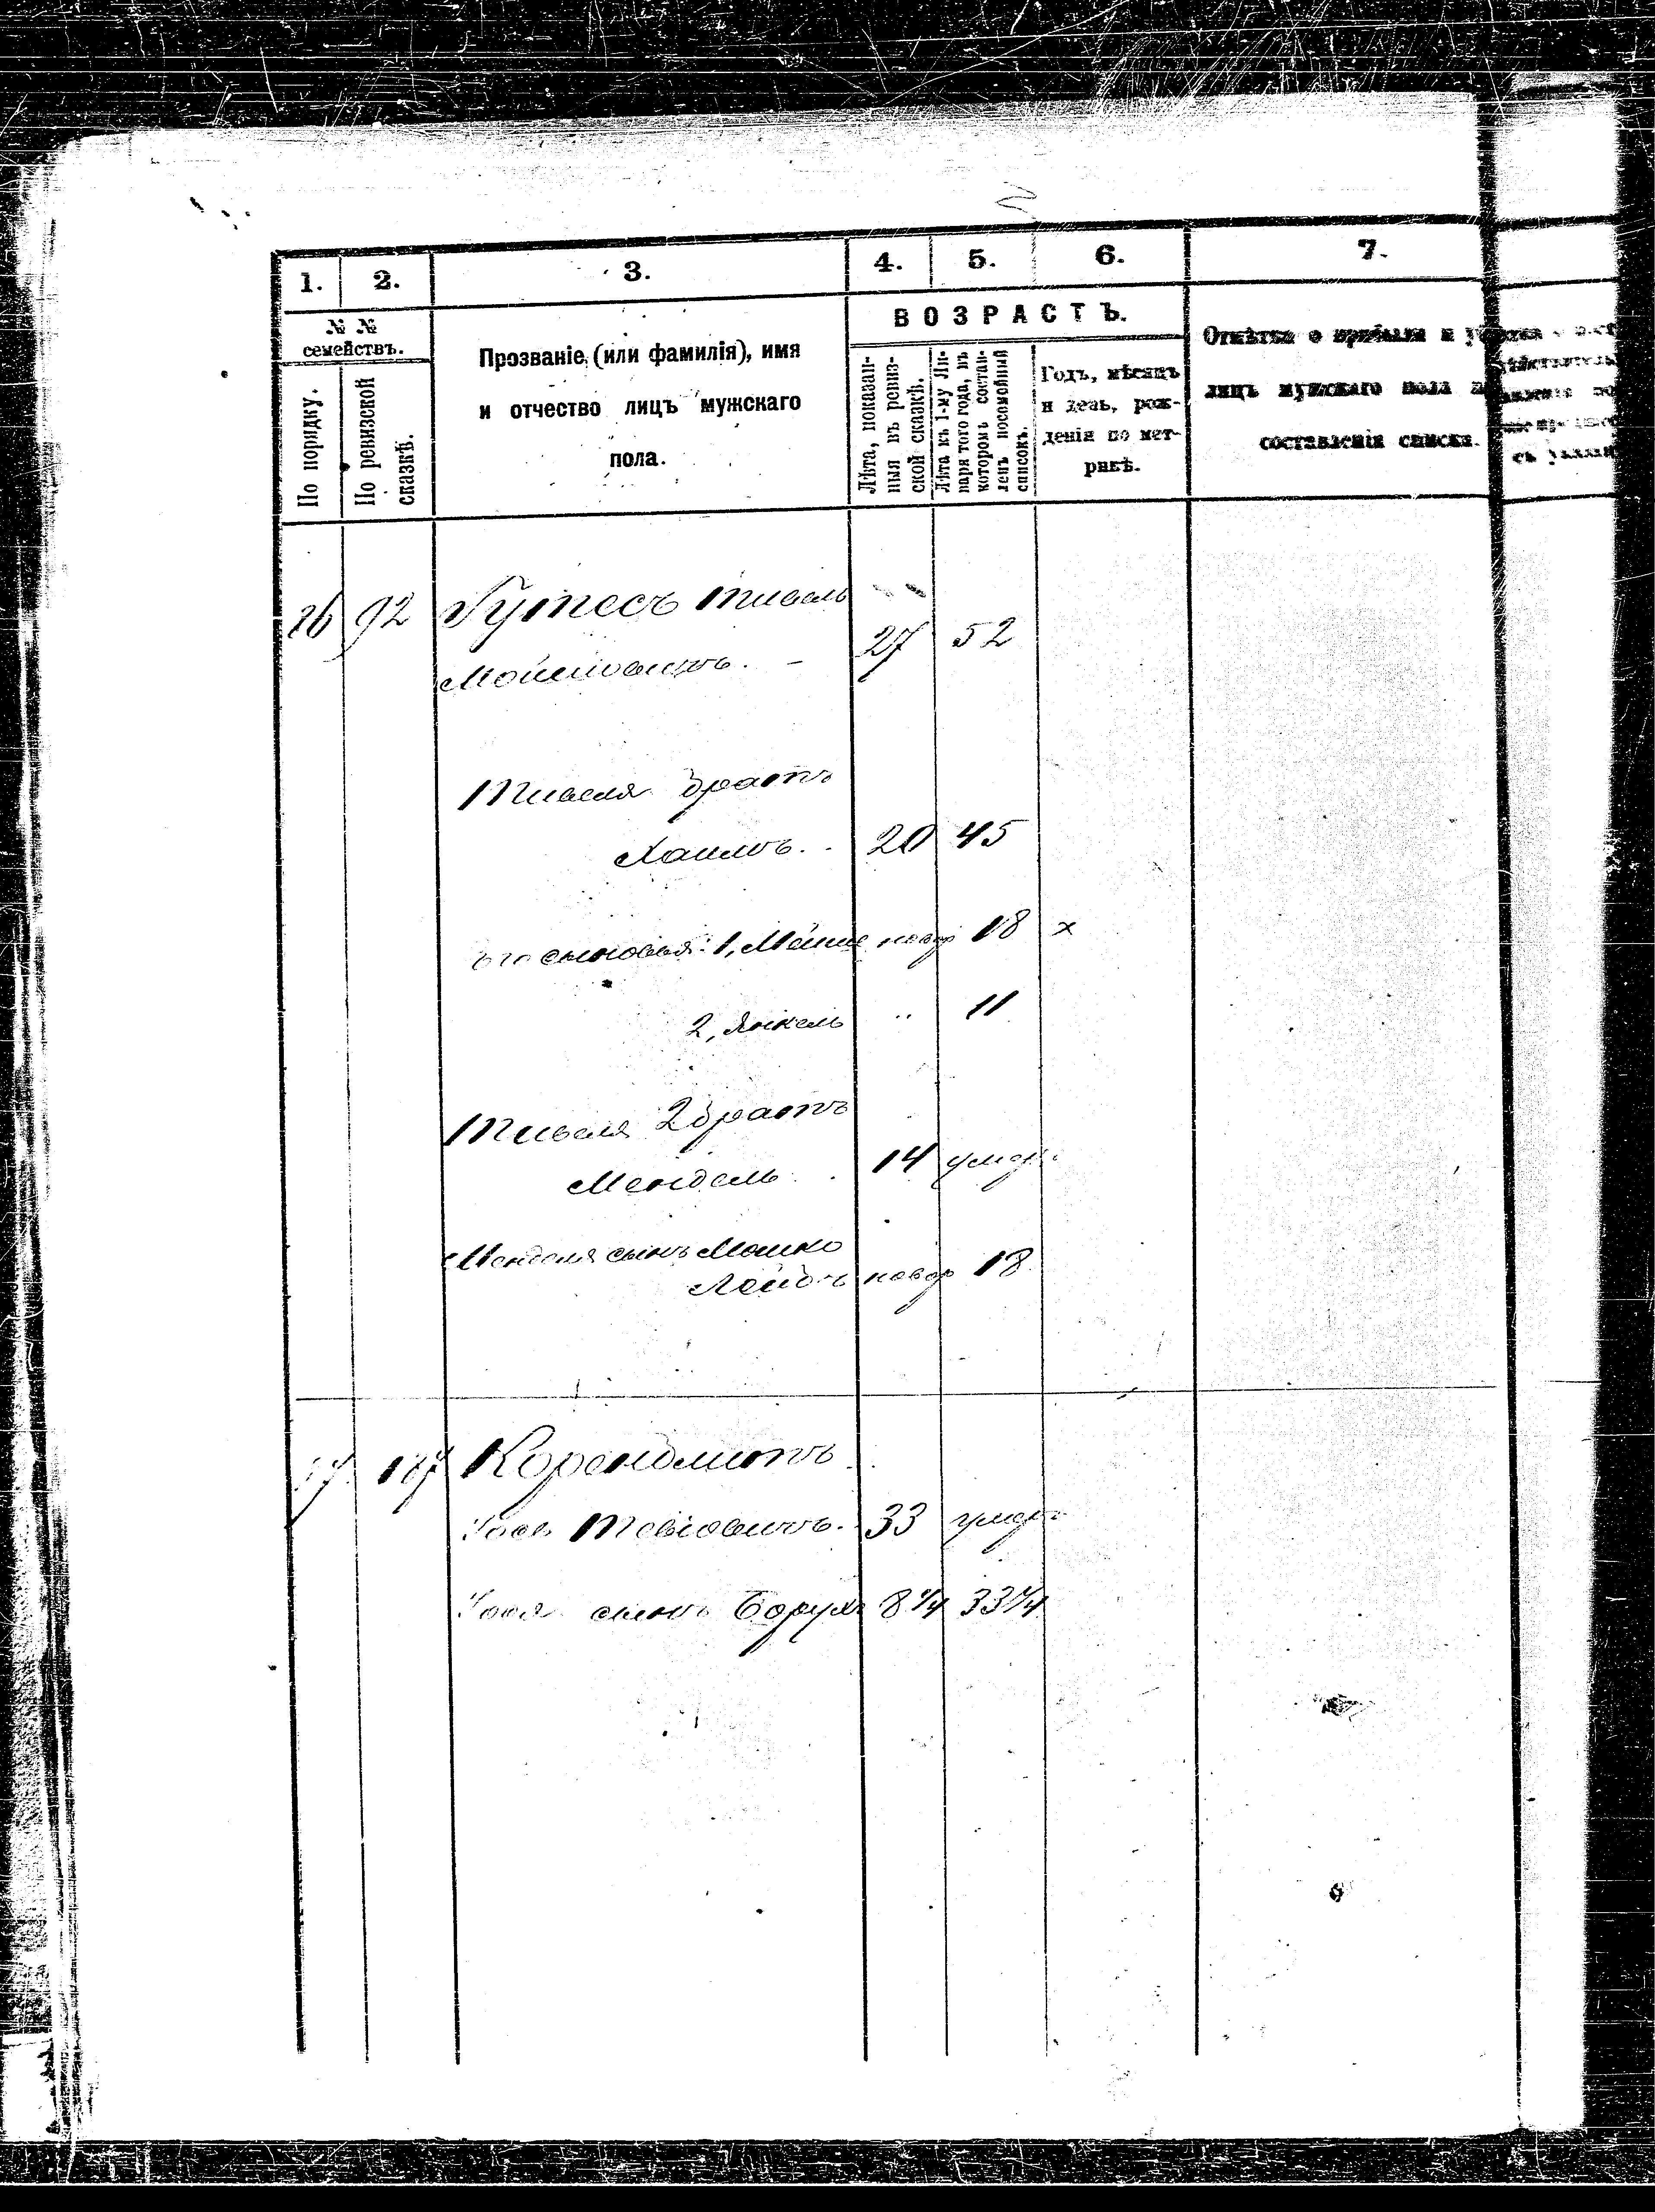 1. 2. 3. 4. 5. 6. 7.
№ №
семействъ.
По порядку.
По ревизской
сказкѣ.
Прозваніе, (или фамилія), имя
и отчество лицъ мужскаго
пола.
ВОЗРАСТЪ.
Лѣта, показан-
ныя въ ревиз-
ской сказкѣ.
Лѣта къ 1-му Ян-
варя того года, въ
которомъ состав-
ленъ посемейный
списокъ.
Годъ, мѣсяцъ
и день, рож-
денія по мет-
рикѣ.
Отмѣтка о прибыли и
лицъ мужскаго пола
составленія списка.
26 92 Гутесъ Тивель
Мошковичъ. - 27 52
Тивеля братъ
Хаимъ. . 20 45
его сыновья: 1, Мошко новор 18 x
2, Янкель " 11
Тивеля 2 братъ
Мендель . 14 умер.
Менделя сынъ Мошко
Лейбъ новор 18
Корендлитъ
Тевіовичъ. 33 умеръ
сынъ Борухъ 8 1/4 33 1/4